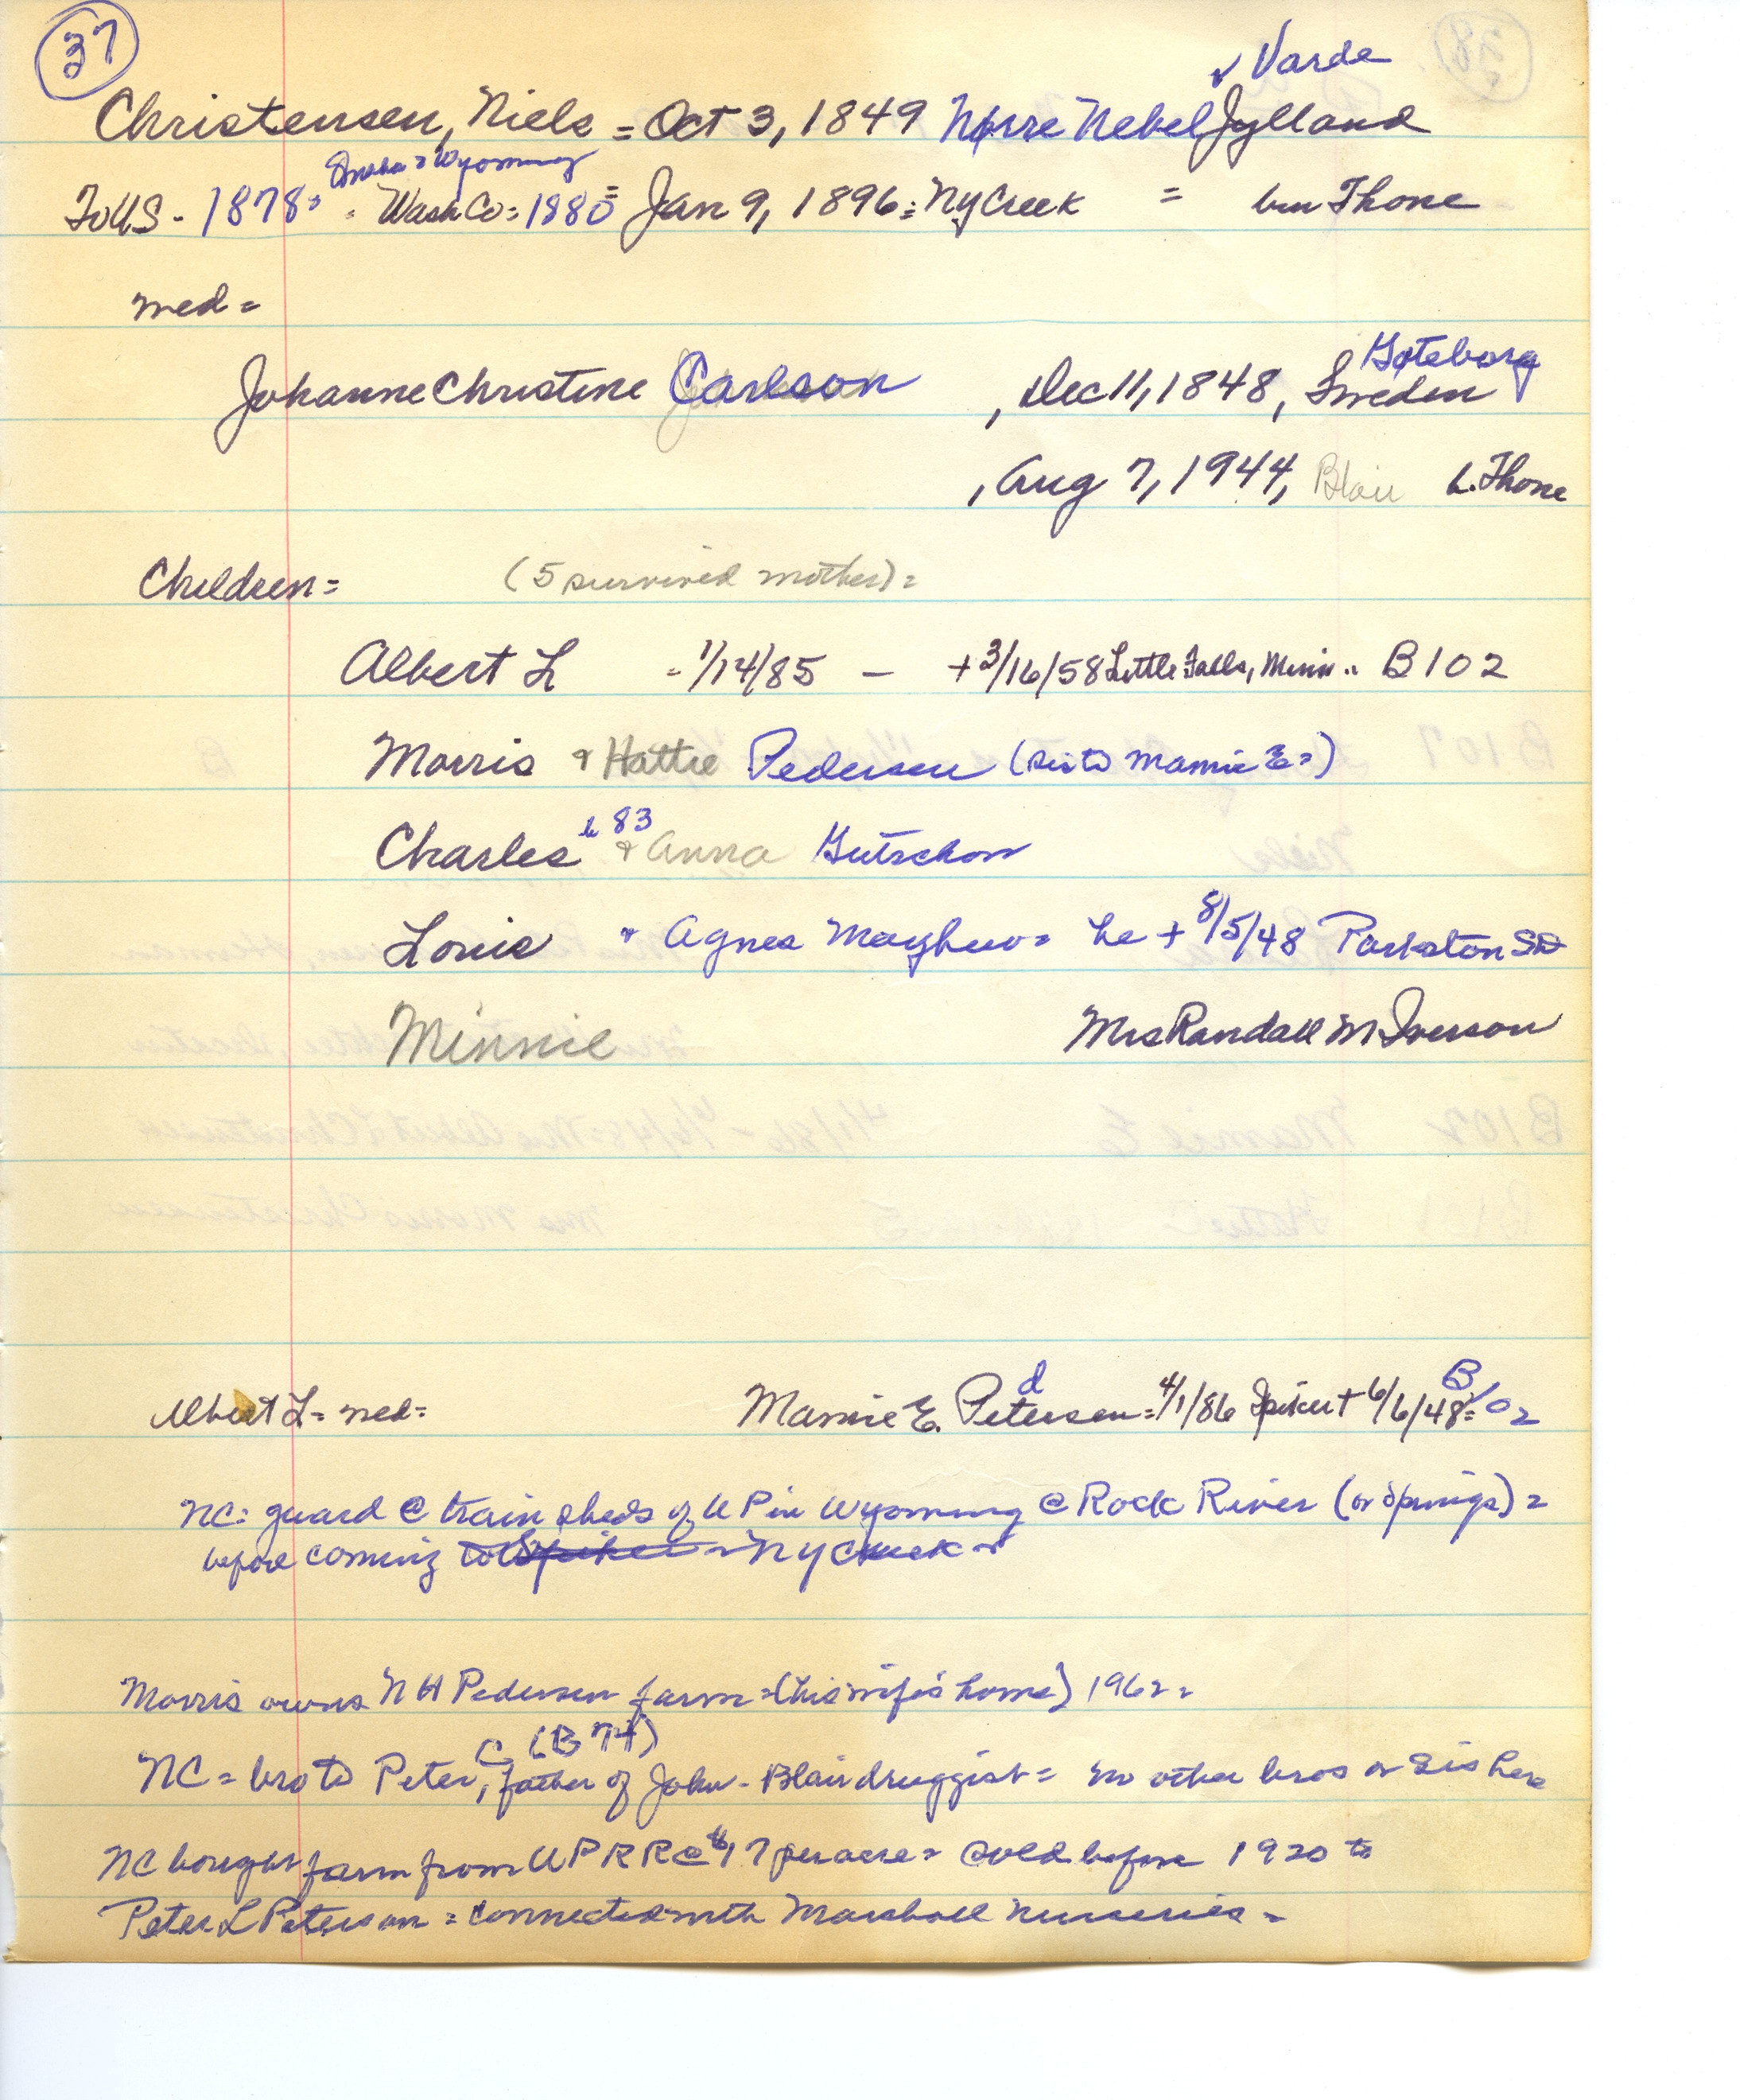 37
✓ Varde
Christensen, Niels = Oct 3, 1849 Nørre Nebel Jylland
Omaha = Wyoming
To US - 1878 = Wash Co = 1880 = Jan 9, 1896 = NY Creek = bur Thone
med =
Göteborg
Johanne Christine Carlson , Dec 11, 1848, Sweden
, Aug 7, 1944, Blair b. Thone
Children = (5 survived mother) =
Albert L - 1/14/85 — + 3/16/58 Little Falls, Minn .. B102
Morris & Hattie Pedersen (sis to Mamie E =)
b 83
Charles & Anna Gutschow
Louie & Agnes Mayhew = he + 8/5/48 Parkston SD
Minnie Mrs Randall M Iverson
d B
Albert L = med = Mamie E. Petersen = 4/1/86 Spiker + 6/6/48 = 102
NC: guard @ train sheds of UP in Wyoming @ Rock River (or Springs) =
before coming to Spiker = NY Creek
Morris owns N H Pedersen farm = (his wife's home) 1962 =
C (B 74)
NC = bro to Peter, father of John - Blair druggist = no other bros or sis here
NC bought farm from UPRR @ $17 per acre = sold before 1920 to
Peter L Peterson = connected with Marshall Nurseries =